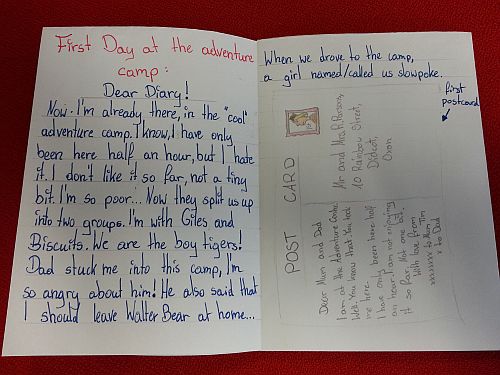 First Day at the adventure
camp:
Dear Diary!
Now I'm already there, in the "cool"
adventure camp. I know, I have only
been here half an hour, but I hate
it. I don't like it so far, not a tiny
bit. I'm so poor... Now they split us up
into two groups. I'm with Giles and
Biscuits. We are the boy tigers!
Dad stuck me into this camp, I'm
so angry about him! He also said that
I should leave Walter Bear at home...
When we drove to the camp,
a girl named/called us slowpoke.
first
postcard
POST CARD
Mr and Mrs R. Parsons,
10 Rainbow Street,
Didcot,
Oxon
Dear Mum and Dad
I am at the Adventure Centre.
Well. You know that. You took
me here.
I have only been here half
an hour. I am not enjoying
it so far. Not one bit.
With love from
Tim
xxxxxxxx to Mum
x to Dad